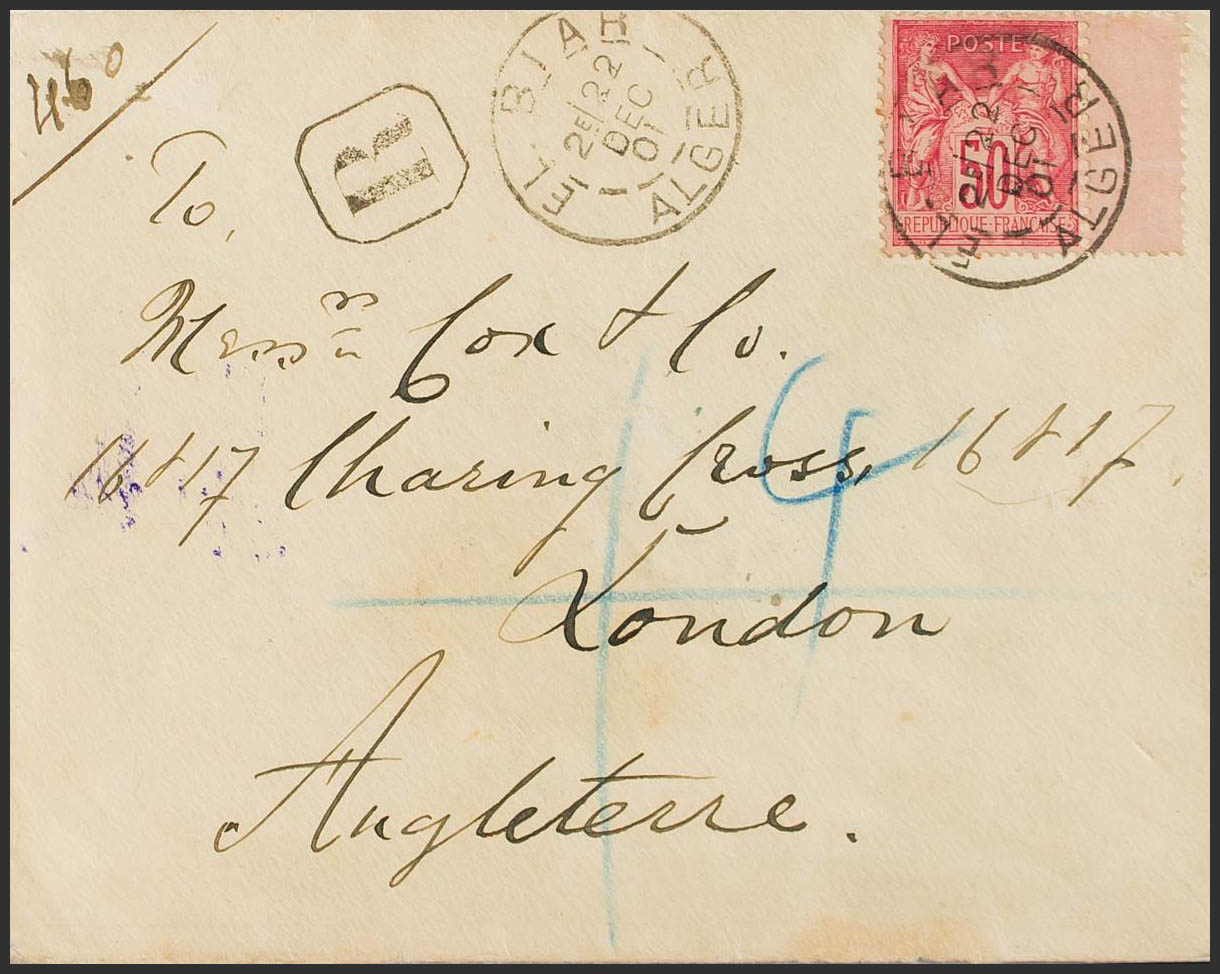 460
R
EL-BIAR
2E/22
DEC
01
ALGER
POSTE
50
REPUBLIQUE FRANCAISE
EL-BIAR
2E/22
DEC
01
ALGER
To,
Messrs Cox & Co.
16 & 17 Charing Cross, 16 & 17
London
Angleterre.